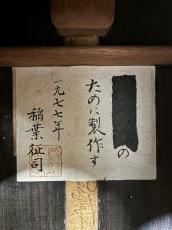 の
ために製作す
一九七七年
稲葉征司